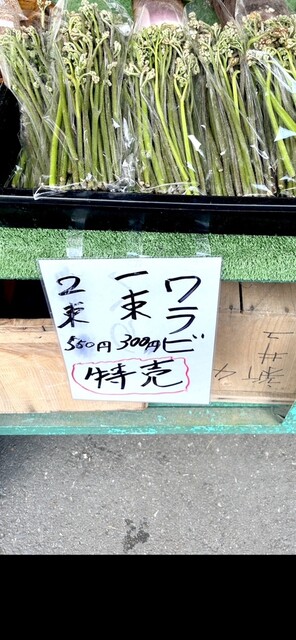 ワラビ
一束
300円
2束
550円
特売